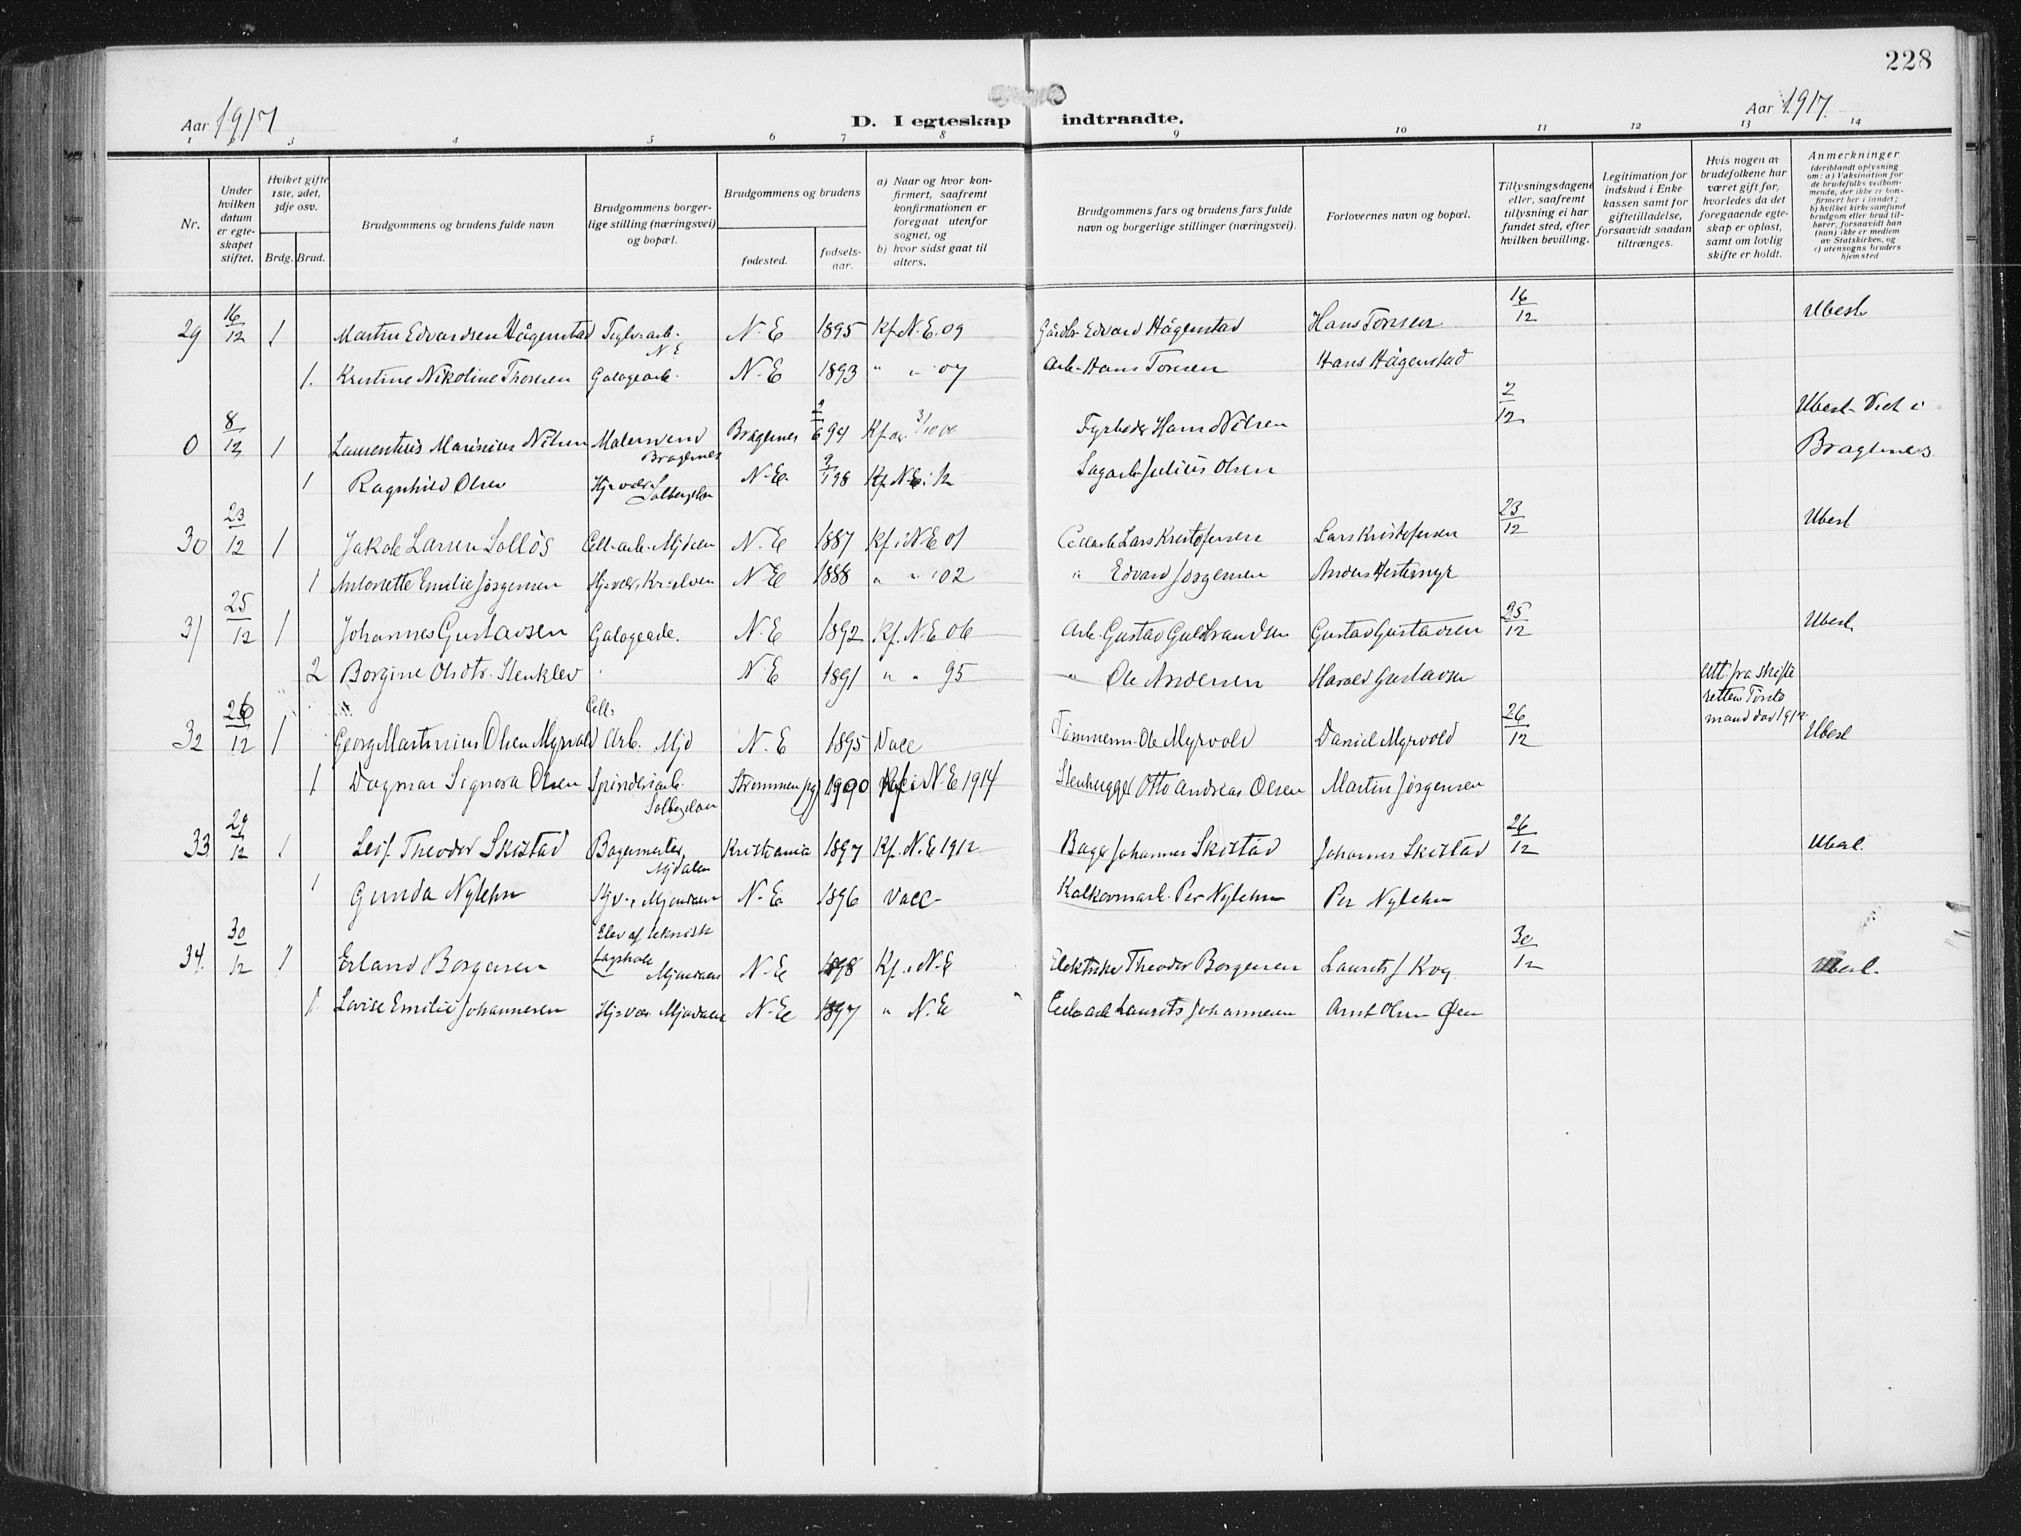 228
Aar 1917
D. I egteskap indtraadte.
Aar 1917.
1 2 3 4 5 6 7 8 9 10 11 12 13 14
Nr.
Under hvilken datum er egteskapet stiftet.
Hviket gifte 1ste, 2det, 3dje osv.
Brdg. Brud.
Brudgommens og brudens fulde navn
Brudgommens borgerlige stilling (næringsvei) og bopæl.
Brudgommens og brudens
fødested.
fødselsaar.
a) Naar og hvor konfirmert, saafremt konfirmationen er foregaat utenfor sognet, og
b) hvor sidst gaat til alters.
Brudgommens fars og brudens fars fulde navn og borgerlige stillinger (næringsvei).
Forlovernes navn og bopæl.
Tillysningsdagene eller, saafremt tillysning ei har fundet sted, efter hvilken bevilling.
Legitimation for indskud i Enkekassen samt for giftetilladelse, forsaavidt saadan tiltrænges.
Hvis nogen av brudefolkene har været gift før, hvorledes da det foregaaende egteskap er opløst, samt om lovlig skifte er holdt.
Anmerkninger (deriblandt oplysning om: a) Vaksination for de brudefolks vedkommende, der ikke er konfirmert her i landet; b) hvilket kirkesamfund brudgom eller brud tilhører, forsaavidt han (hun) ikke er medlem av Statskirken, og c) utensogns bruders hjemsted
29 16/12 1 Martin Edvardsen Hågenstad Teglv.arb. N.E N.E 1895 Kf. N.E. 09 Gårdbr. Edvard Hågenstad Hans Tonsen 16/12 Ubesl
1. Kristine Nikoline Thonsen Galogearb. N.E 1893 " " 07 Arb. Hans Tonsen Hans Hågenstad
0 8/12 1 Laurentius Marinius Nilsen Malersvend Bragernes Bragernes 9/6 94 Fyrbøder Hans Nilsen 2/12 Ubesl. Viet i Bragernes
1 Ragnhild Olsen N.E. Kf. N.E. 12 Sagarb. Julius Olsen
30 23/12 1 Jakob Larsen Solløs Cell.arb. Mjdalen N.E 1887 Kf. i N.E 01 Cellarb. Lars Kristofersen Lars Kristofersen 23/12 Ubesl
1 Antonette Emilie Jørgensen Hjv. Kr.elven N.E 1888 " " 02 " Edvard Jørgensen Anders Hestemyr
31 25/12 1 Johannes Gustavsen Galogearb. N.E 1892 Kf. N.E 06 Arb. Gustav Guldbrandsen Gustav Gustavsen 25/12 Ubesl.
2 Borgine Olsdtr. Stenklev N.E 1891 " " 95 " Ole Andersen Harald Gustavsen Att. fra skifteretten 1ste mand død 1912
32 26/12 1 Georg Martinius Olsen Myrvold Cell. Arb. Mjd N.E 1895 Vacc Tømmerm. Ole Myrvold Daniel Myrvold 26/12 Ubesl
1 Dagmar Signora Olsen Spinderiarb. Solbergelven 1900 Kf. i N.E 1914 Stenhugger Otto Andreas Olsen Martin Jørgensen
33 29/12 1 Leif Theodor Skistad Bagermester Mjdalen Kristiania 1897 Kf. N.E 1912 Bager Johannes Skistad Johannes Skistad 26/12 Ubesl.
1 Gunda Nylehn Hjv. i Mjøndalen N.E 1896 Vacc. Per Nylehn Per Nylehn
34. 30/12 1 Erland Borgersen Elev af teknisk Mjøndalen N.E 1898 Kf. i N.E Theodor Borgersen Laurits J Krog 30/12 Ubesl.
1 Lovise Emilie Johannesen Hjv. Mjøndalen N.E 1897 " N.E Laurits Johannesen Arnt Olsen Øen